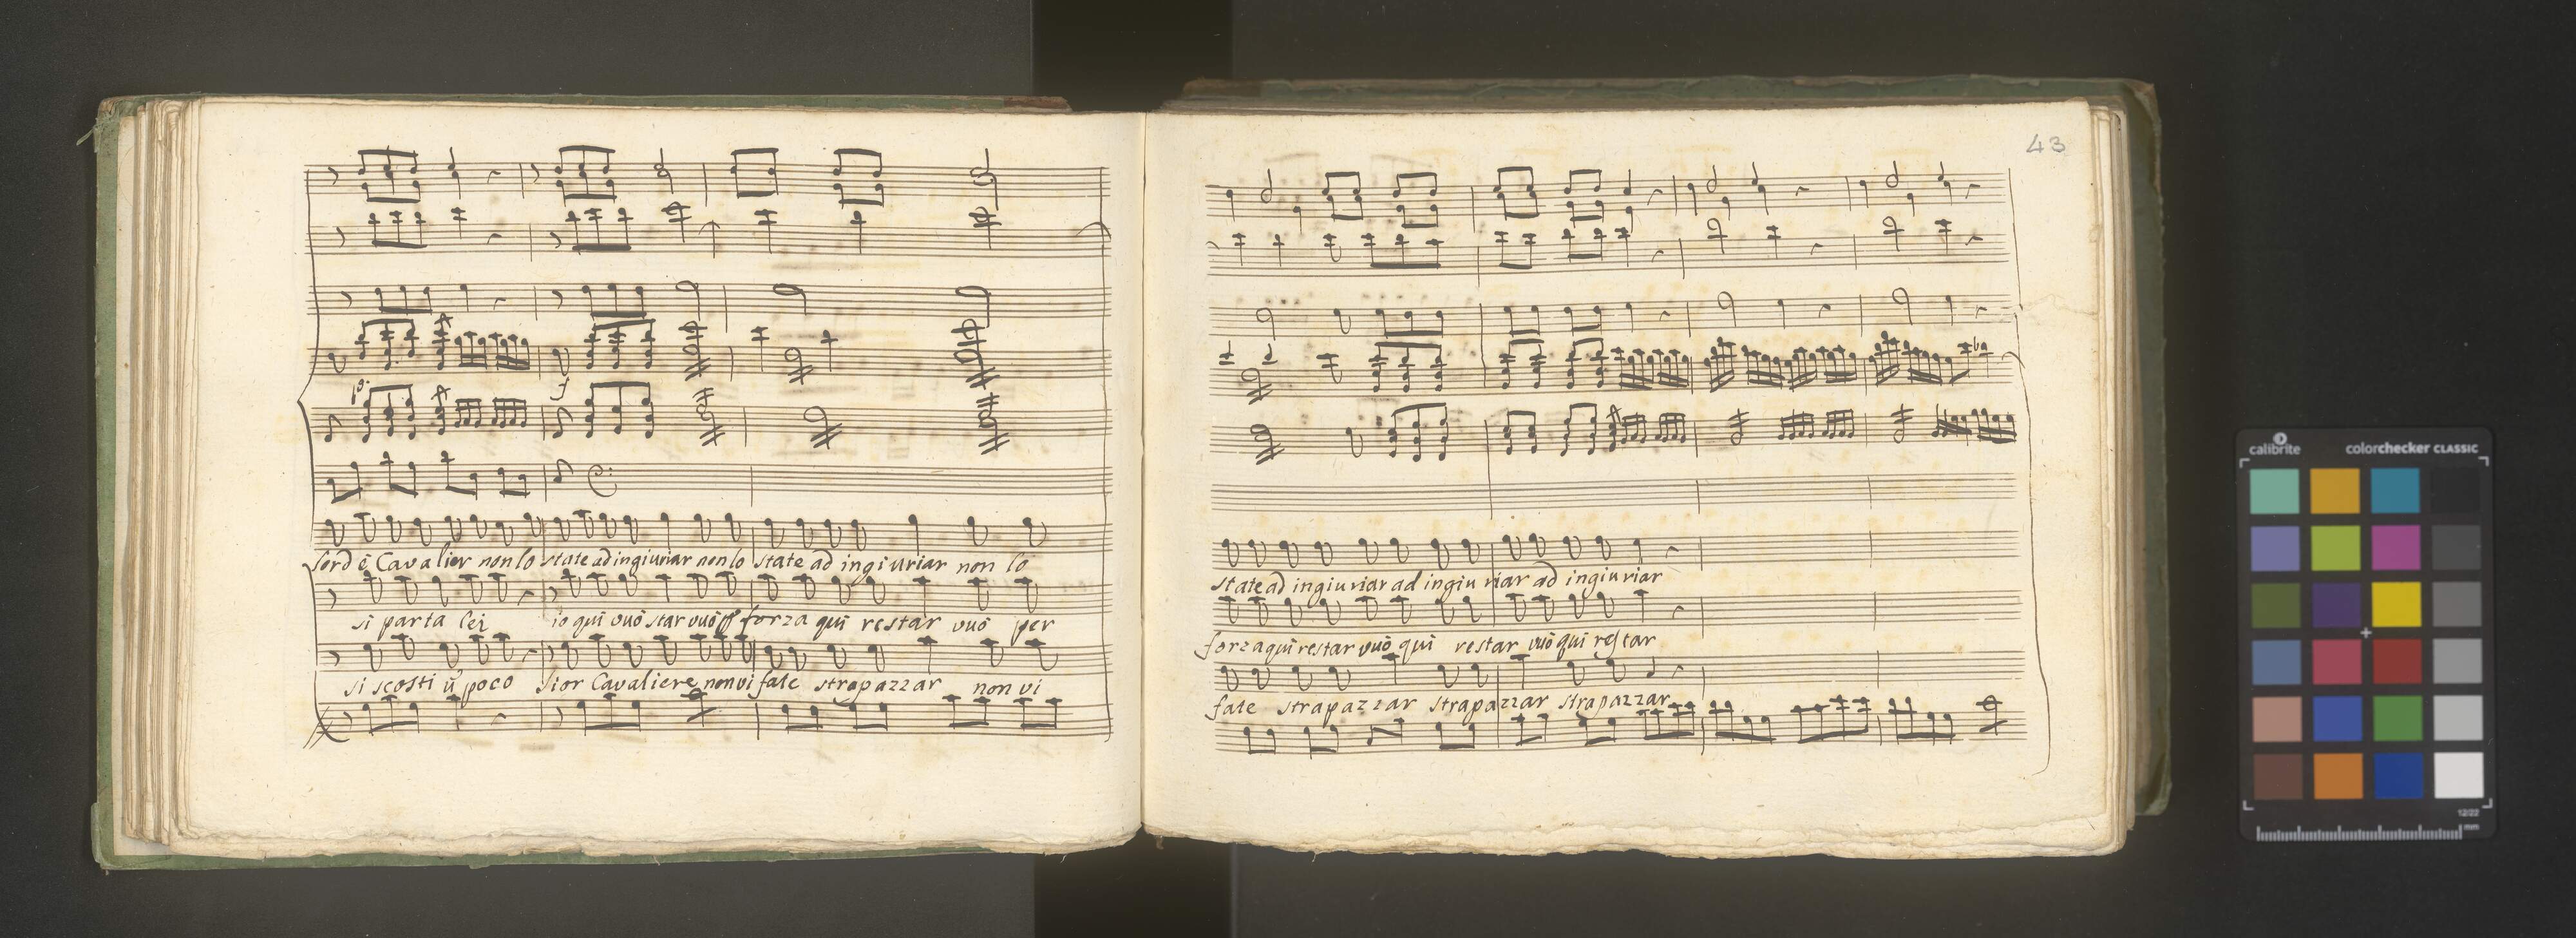 p.
f
lord è Cavalier non lo state ad ingiuriar non lo state ad ingiuriar non lo
si parta lei io qui vuò star vuò forza qui restar vuò per
si scosti ũ poco Sior Cavaliere non vi fate strapazzar non vi
43
state ad ingiuriar ad ingiuriar ad ingiuriar
forza qui restar vuò qui restar vuò qui restar
fate strapazzar strapazzar strapazzar
calibrite colorchecker CLASSIC
12/22
mm